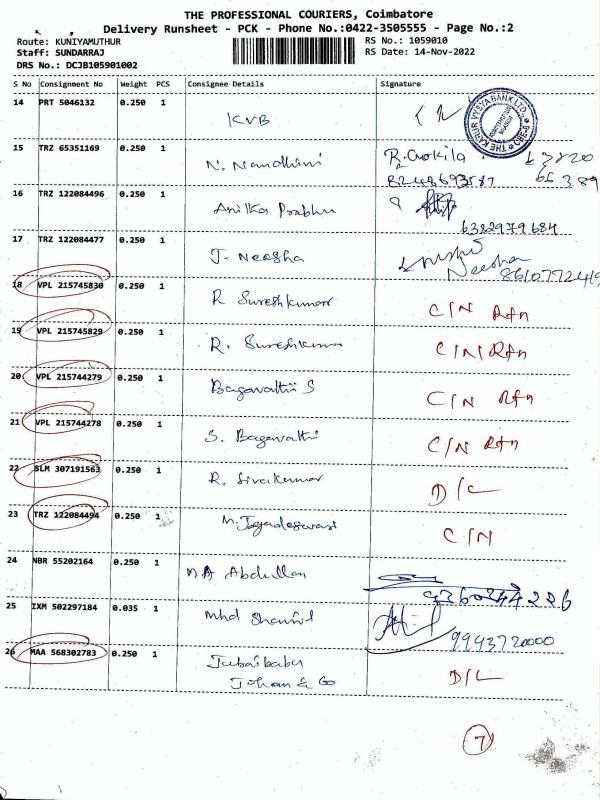 THE PROFESSIONAL COURIERS, Coimbatore
Delivery Runsheet - PCK - Phone No.:0422-3505555 - Page No.:2
Route: KUNIYAMUTHUR RS No.: 1059010
Staff: SUNDARRAJ RS Date: 14-Nov-2022
DRS No.: DCJB105901002
S No Consignment No Weight PCS Consignee Details Signature
14 PRT 5046132 0.250 1 KVB
THE KARUR VYSYA BANK LTD. CBE-
15 TRZ 65351169 0.250 1 N. Nandhini R. Gokila
16 TRZ 122084496 0.250 1 Anilka Prabhu
6382979684
17 TRZ 122084477 0.250 1 J. Neesha Neesha
18 VPL 215745830 0.250 1 R Sureshkumar C/N Rtn
19 VPL 215745829 0.250 1 R. Sureshkumar C/N Rtn
20 VPL 215744279 0.250 1 Bagavathi S C/N Rtn
21 VPL 215744278 0.250 1 S. Bagavathi C/N Rtn
22 SLM 307191563 0.250 1 R. Sivakumar D/L
23 TRZ 122084494 0.250 1 M. Jegadeswari C/N
24 NBR 55202164 0.250 1 M A Abdullah
9360844226
25 IXM 502297184 0.035 1 Mhd Shamil
9943720000
26 MAA 568302783 0.250 1 Jubaibabu D/L
Johan & Co
7